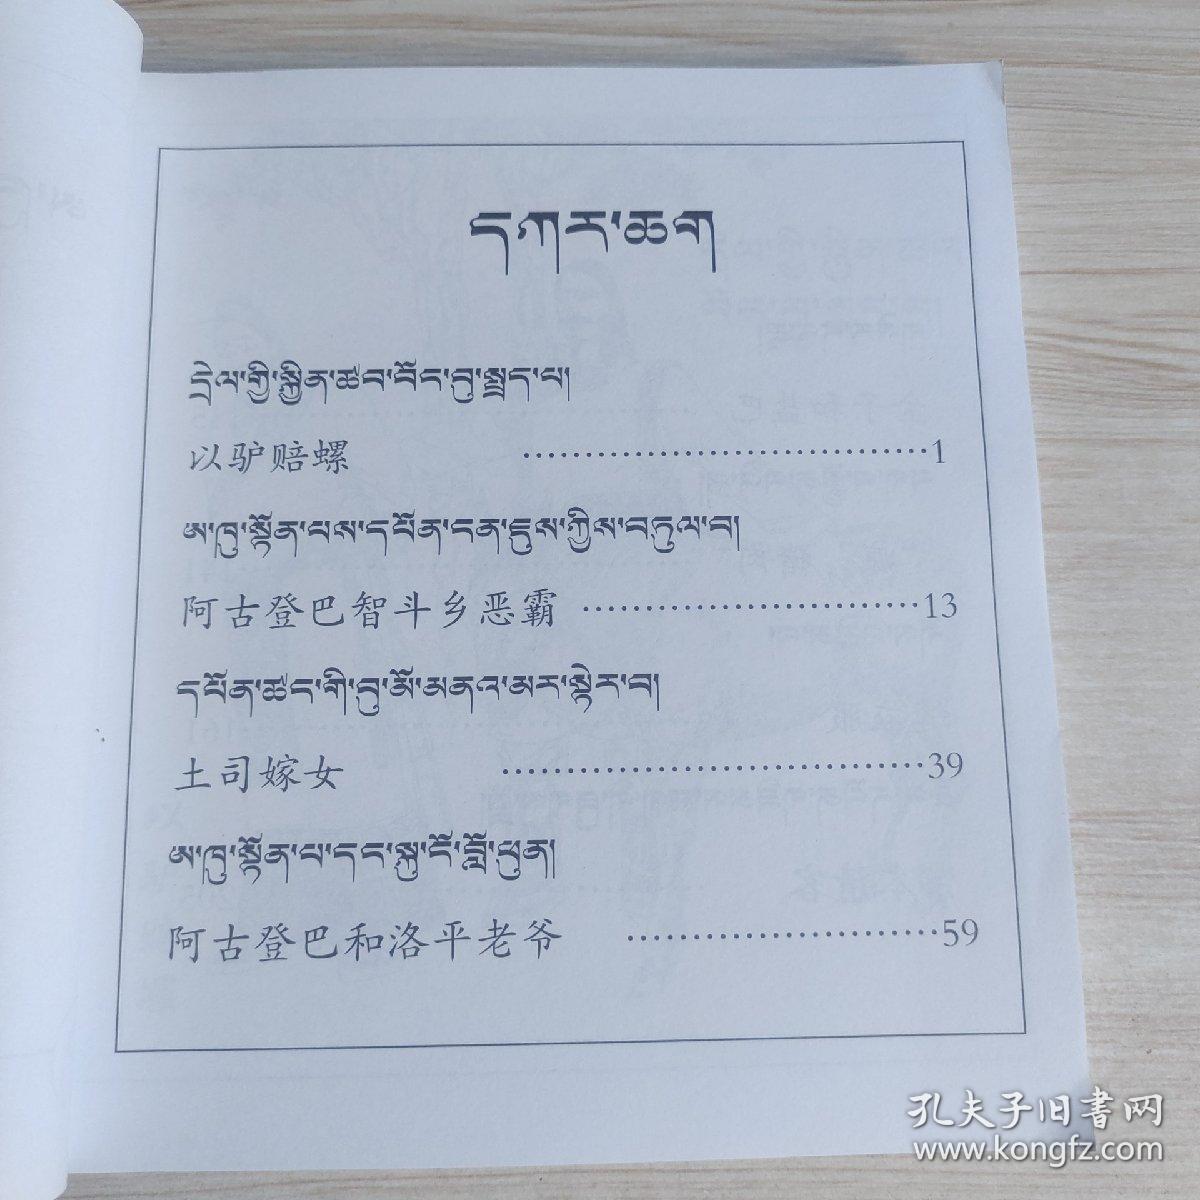 དཀར་ཆག
དྲེལ་གྱི་སྐྱིན་ཚབ་བོང་བུ་སྤྲད་པ།
以驴赔螺 ································· 1
ཨ་ཁུ་སྟོན་པས་དཔོན་ངན་ཇུས་ཀྱིས་བཏུལ་བ།
阿古登巴智斗乡恶霸 ··························· 13
དཔོན་ཚང་གི་བུ་མོ་མནའ་མར་སྟེར་བ།
土司嫁女 ································· 39
ཨ་ཁུ་སྟོན་པ་དང་སྐུ་ངོ་བློ་ཕུན།
阿古登巴和洛平老爷 ························ 59
孔夫子旧书网
www.kongfz.com